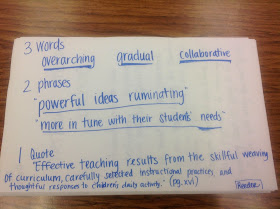 3 words
overarching gradual collaborative
2 phrases
"powerful ideas ruminating"
"more in tune with their students' needs"
1 Quote
"Effective teaching results from the skillful weaving
of curriculum, carefully selected instructional practices, and
thoughtful responses to children's daily activity." (pg. xvi)